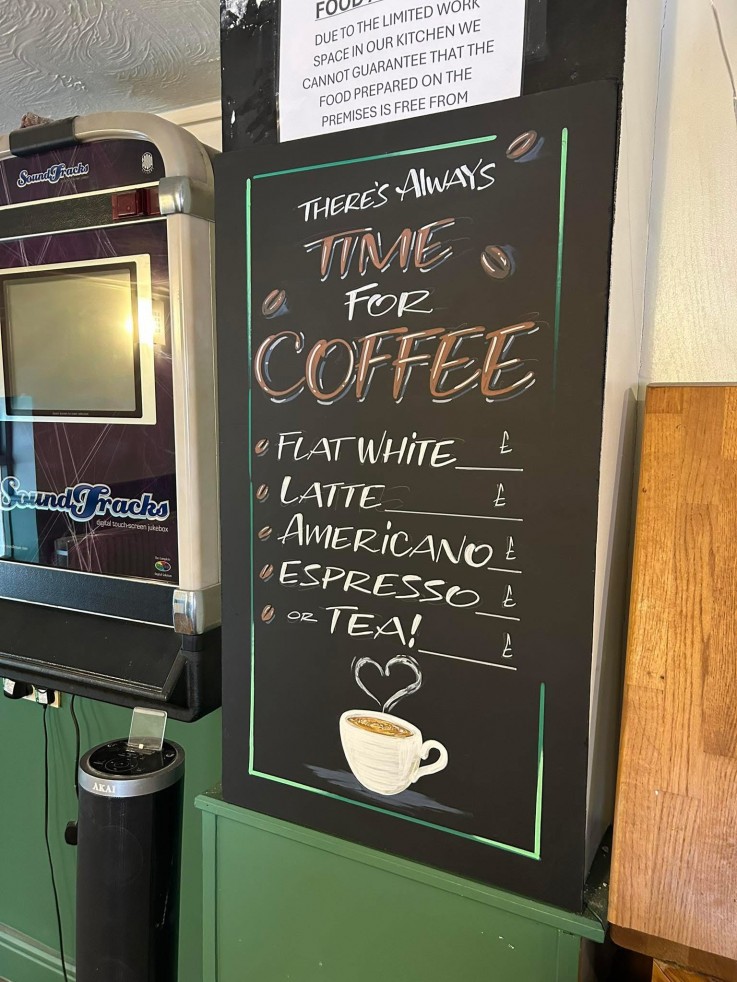 DUE TO THE LIMITED WORK
SPACE IN OUR KITCHEN WE
CANNOT GUARANTEE THAT THE
FOOD PREPARED ON THE
PREMISES IS FREE FROM
SoundTracks
THERE'S ALWAYS
TIME
FOR
COFFEE
FLAT WHITE £
LATTE £
AMERICANO £
ESPRESSO £
OR TEA! £
SoundTracks
digital touch-screen jukebox
AKAI